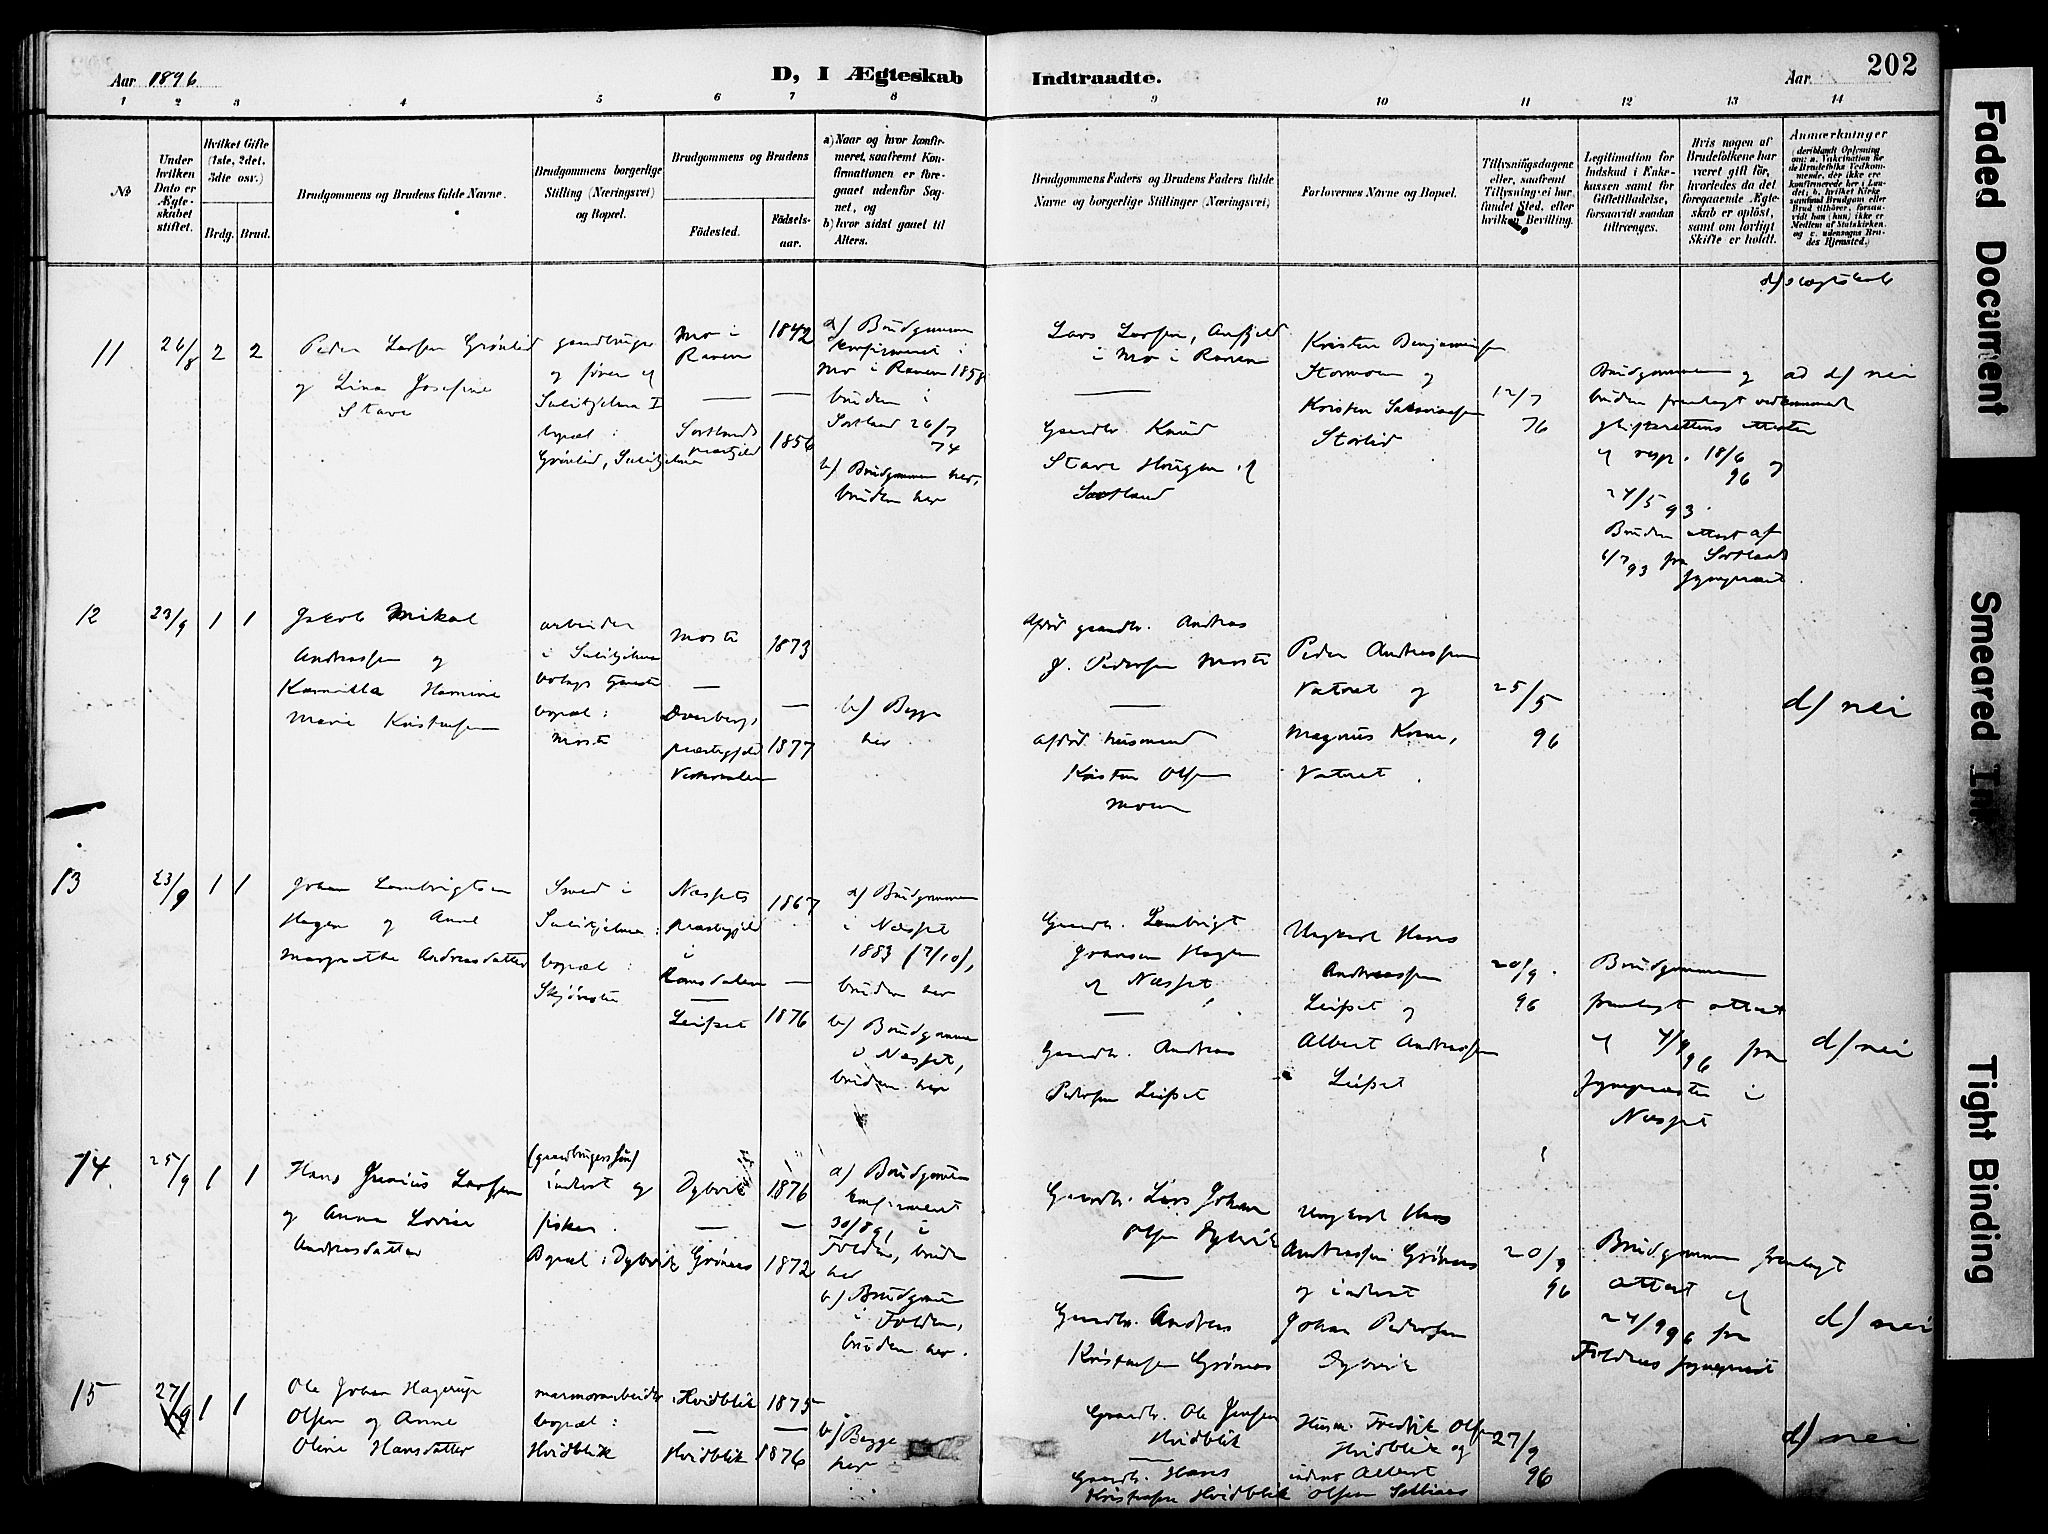 Aar 1896.
D, I Ægteskab
Indtraadte.
Aar
202
1 2 3 4 5 6 7 8 9 10 11 12 13 14
No
Under hvilken Dato er Ægteskabet stiftet.
Hvilket Gifte (1ste, 2det, 3die osv.)
Brdg. Brud.
Brudgommens og Brudens fulde Navne.
Brudgommens borgerlige Stilling (Næringsvei) og Bopæl.
Brudgommens og Brudens
Födested.
Födselsaar.
a) Naar og hvor konfirmeret, saafremt Konfirmationen er foregaaet udenfor Sognet, og
b) hvor sidst gaaet til Alters.
Brudgommens Faders og Brudens Faders fulde Navne og borgerlige Stillinger (Næringsvei)
Forlovernes Navne og Bopæl.
Tillysningsdagene eller, saafremt Tillysning ei har fundet Sted, efter hvilken Bevilling.
Legitimation for Indskud i Enkekassen samt for Giftetilladelse, forsaavidt saadan tiltrænges.
Hvis nogen af Brudefolkene har været gift för, hvorledes da det foregaaende Ægteskab er oplöst, samt om lovligt Skifte er holdt.
Anmærkninger
d/ slægtskab
11 26/8 2 2
Peder Larsen Grönlid
og Lina Josefine
Stave
gaardbruger
Sulitjelma
bopæl:
Grönlid, Sulitjelma
Mo i
Ranen
1842
Sortlands
1856
a/ Brudgommen
konfirmeret i
Mo i Ranen 1858
bruden i
Sortland 26/7
74
b/ Brudgommen her,
bruden her
Lars Larsen, Anfjeld
i Mo i Ranen
Gaardbr. Knud
Stave Haugen af
Sortland
Kristen Benjaminsen
Stormoen og
Storlid
12/7
96
Brudgommen og
bruden fremlagt vedkommende
skifterettens attester
af resp. 18/6 og
96
24/5 93.
Bruden attest af
fra Sortlands
Sognepræst.
ad d/ nei
12 23/9 1 1
Jakob Mikal
Andreassen og
Kamilla Hamine
Marie Kristensen
arbeider
i Sulitjelma
bolags tjeneste
bopæl:
Moste
Moste
1873
Dverberg,
præstegjeld
Vesteraalen
1877
b/ Begge
her
afdød gaardbr. Andreas
J. Pedersen Moste
afdød husmand
Kristen Olsen
Moen
Peder Andreassen
Vatnet og
Magnus Korne,
Vatnet.
25/5
96
d/ nei
13 23/9 1 1
Johan Lambrigtsen
Hagen og Anne
Margrethe Andreasdatter
Smed i
Sulitjelma:
bopæl:
Skjönstu
Næssets
præstegjeld
i
Romsdalen
1867
Leifset
1876
a/ Brudgommen
i Næsset
1883 (7/10),
bruden her
b/ Brudgommen
i Næsset,
bruden her
Gaardbr. Lambrigt
Hagen
af Næsset
Gaardbr. Andreas
Pedersen Leifset
Ungkarl Hans
Andreassen
Leifset og
Albert Andreassen
Leifset
20/9.
96
Brudgommen
fremlagt attest
af 4/9 96 fra
Sognepræsten i
Næsset
d/ nei
14. 25/9 1 1
Hans Junius Larssen
og Anna Lovise
Andreasdatter
(gaardbrugerssön)
inderst og
fisker.
Bopæl: Dybvik
Dybvik
1876
Grönnes
1872
a/ Brudgommen
konfirmeret
30/8 91 i
Folden, bruden
her
b/ Brudgommen
i Folden,
bruden her.
Gaardbr. Lars Johan
Olsen Dybvik
Gaardbr. Andreas
Kristensen Grönnes
Ungkarl Hans
Andreassen Grönnes
og inderst
Johan Pedersen
Dybvik
20/9
96
Brudgommen fremlagt
attest af
24/9 96 fra
Foldens Sognepræst
d/ nei
15 27/9 1 1
Ole Johan Hagerup
Olsen og Anne
Oline Hansdatter
marmorarbeider
bopæl:
Hvidblik
Hvidblik
1875
Hvidblik
1876
b/ Begge
her
Gaardbr. Ole Jensen
Hvidblik
Gaardbr. Hans
Kristensen Hvidblik
Husm. Fredrik Olsen
Hvidblik og
inderst Albert
Olsen
27/9
96
d/ nei
Faded Document
Smeared Ink
Tight Binding